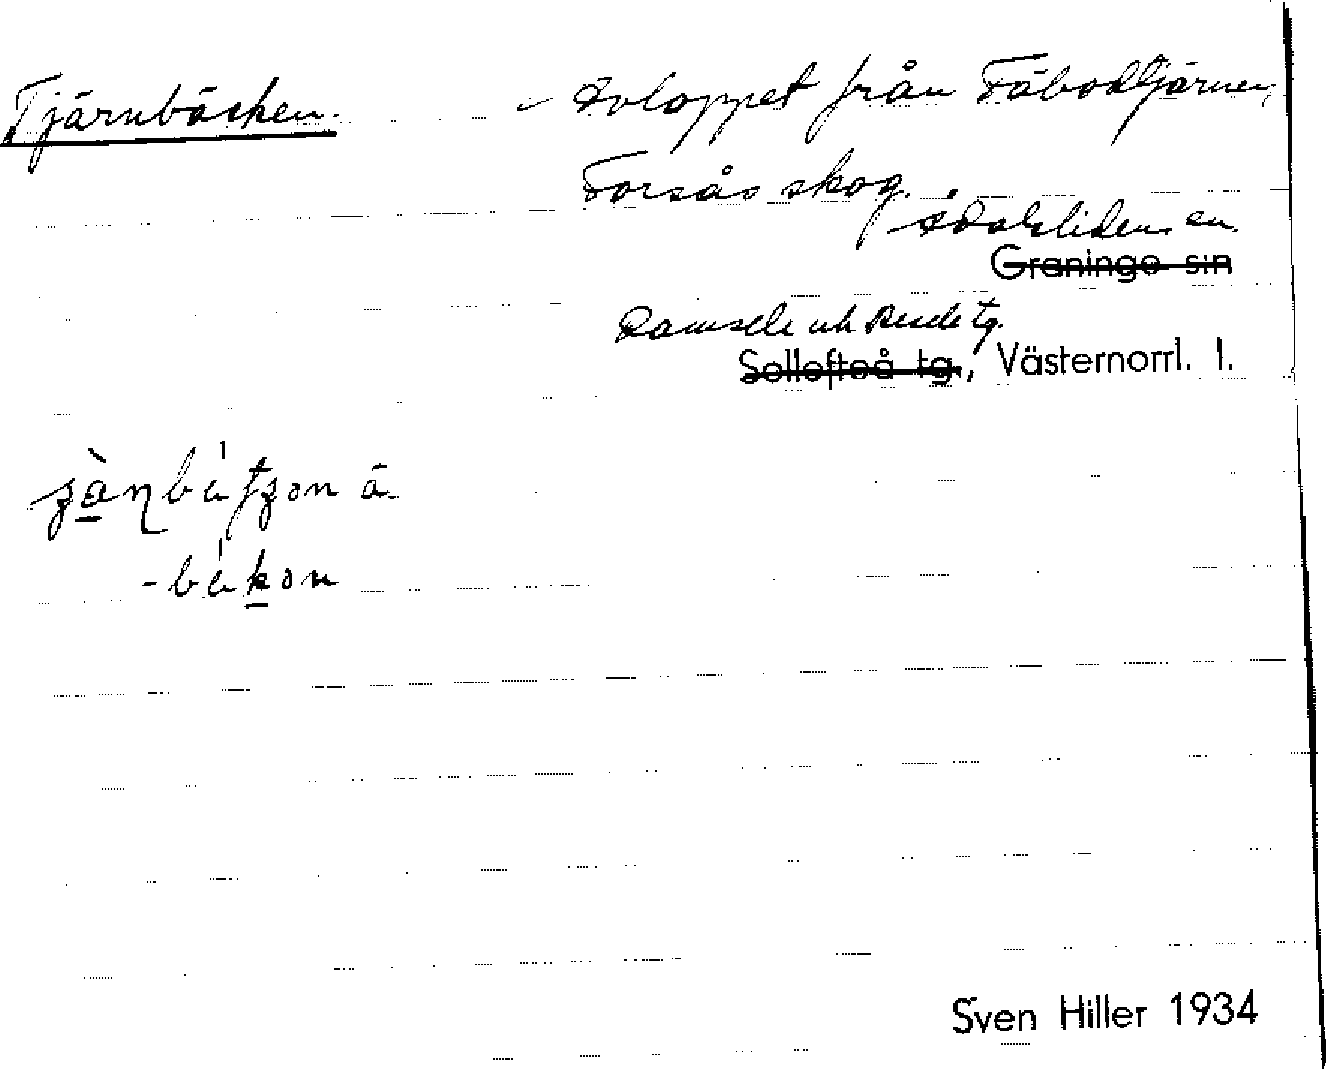 Tjärnbäcken. - Avloppet från Fäbodtjärnen,
Forsås skog.
Ådalsliden sn
Graninge s:n
Ramsele och Resele tg.
Sollefteå tg., Västernorrl. l.
Sven Hiller 1934